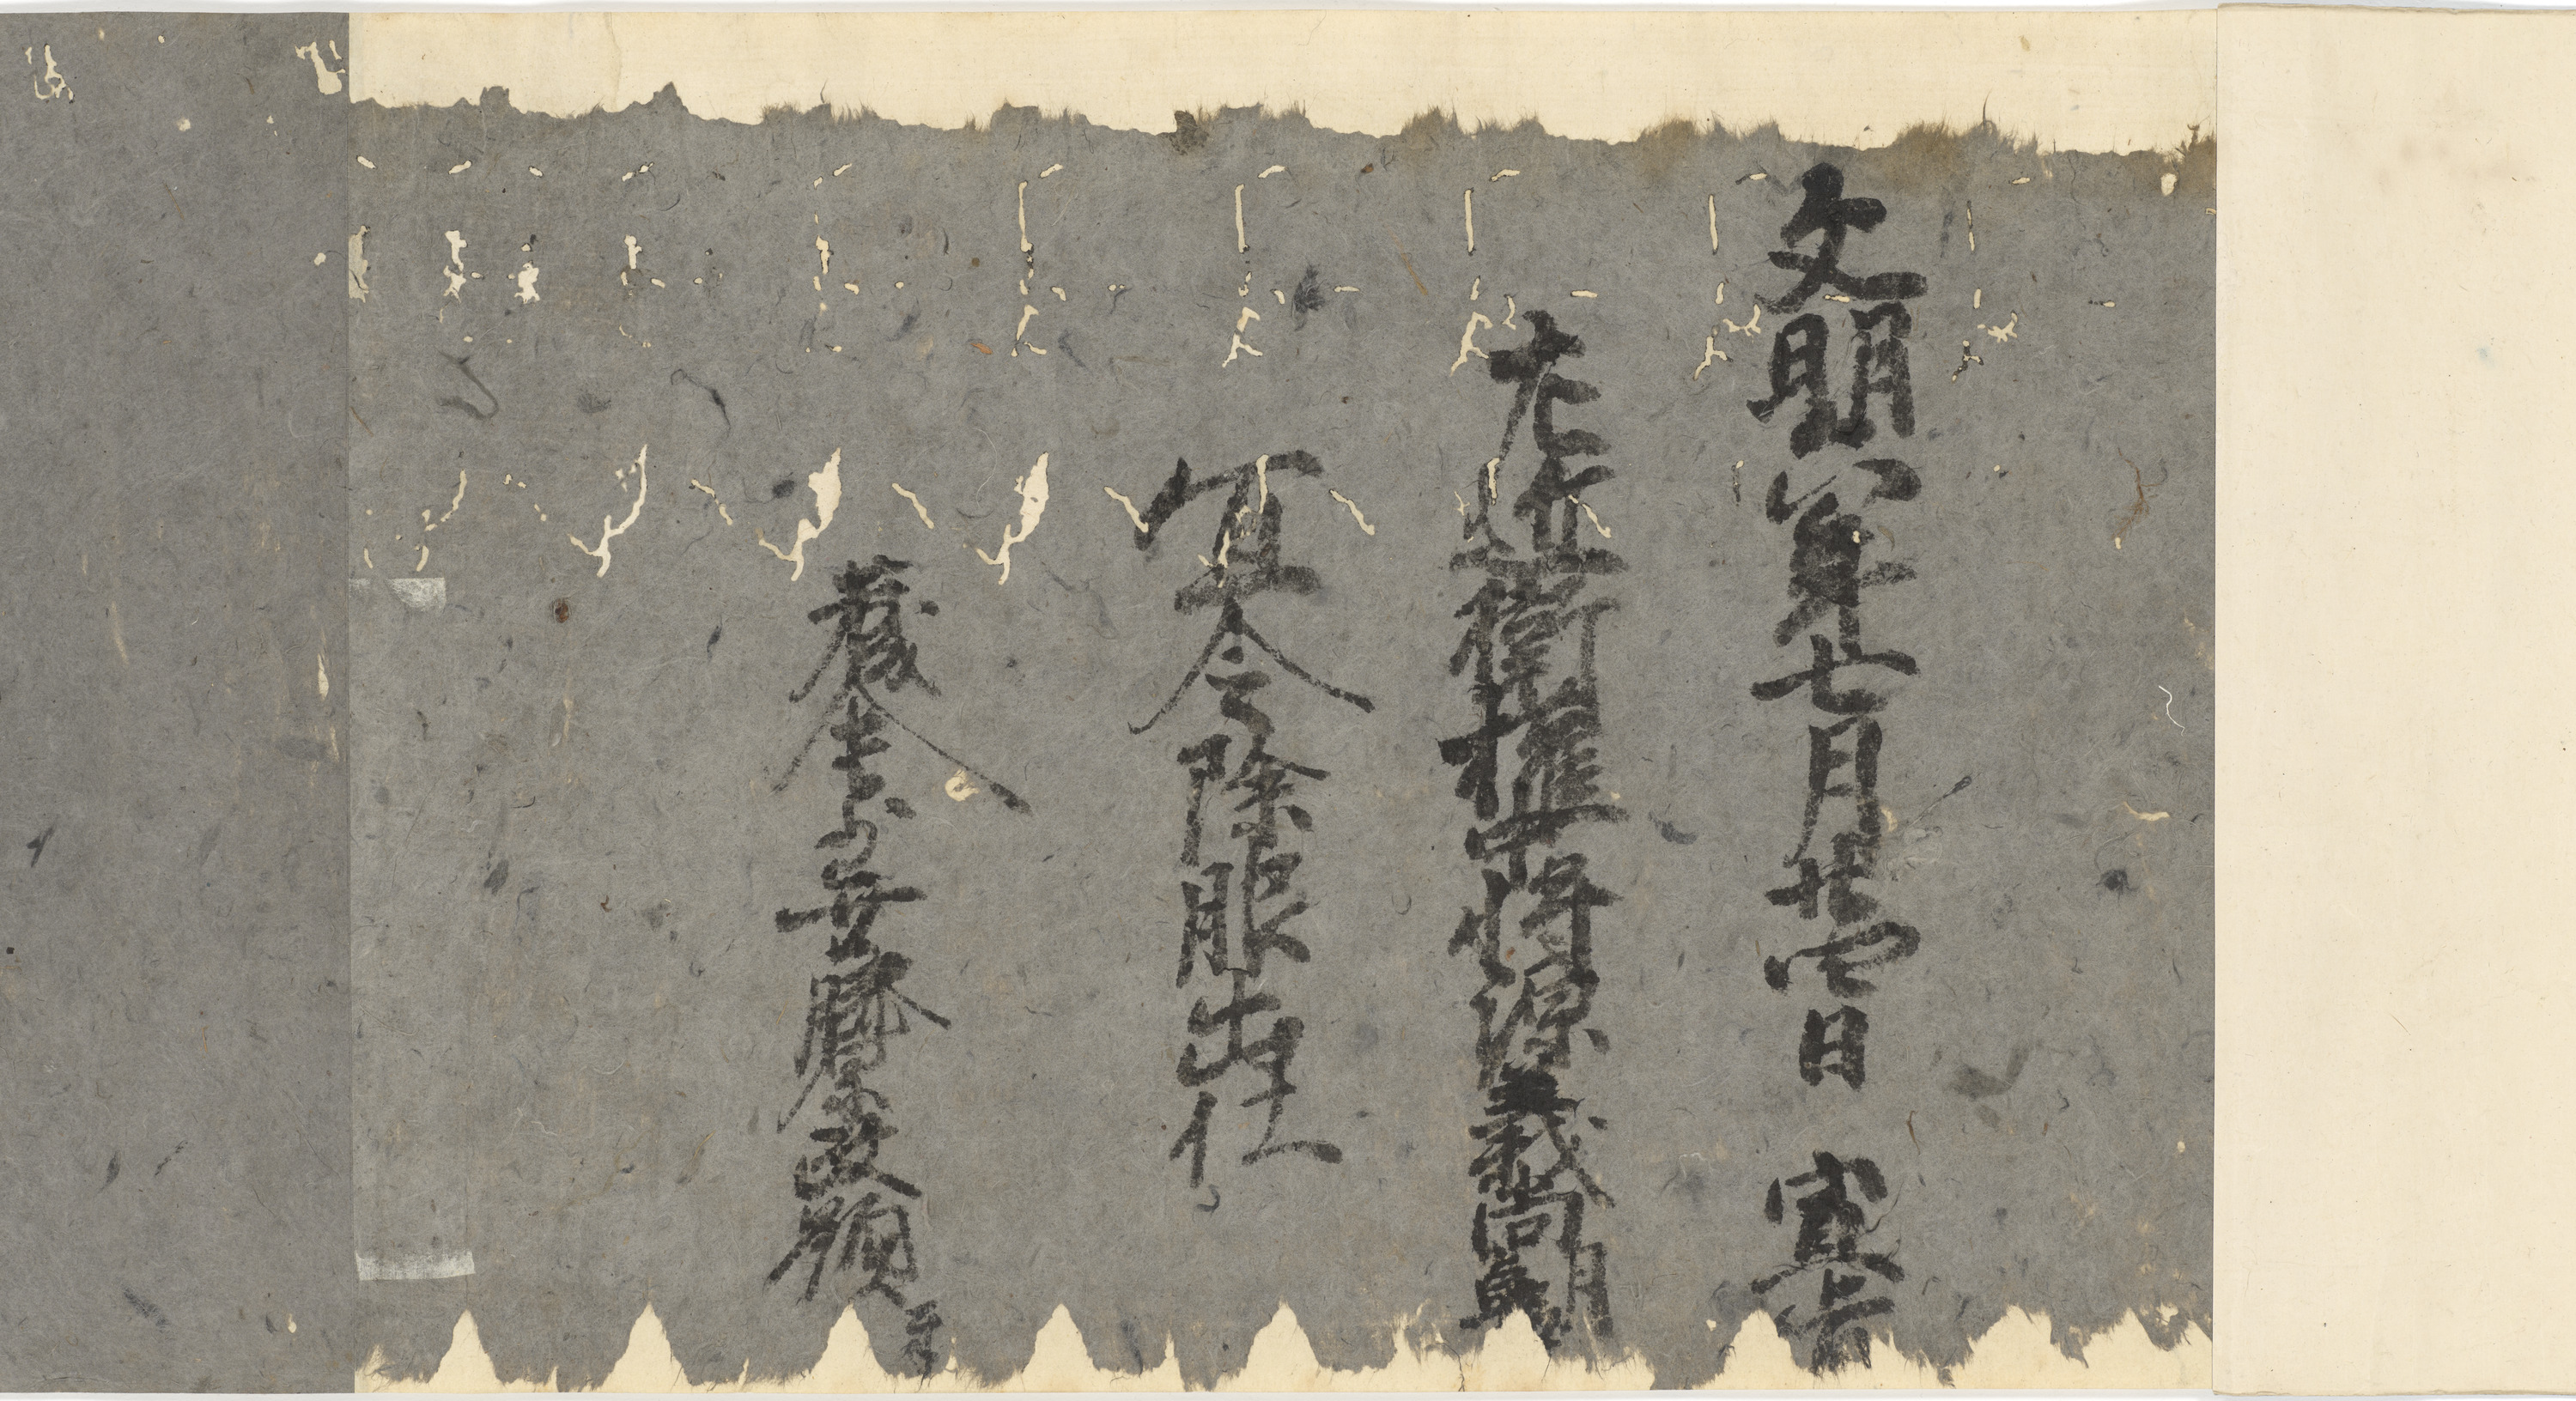 文明八年七月廿四日　宣旨
左近衛権中将源義尚朝臣
宜令除服出仕
蔵人左少弁藤原政顕奉